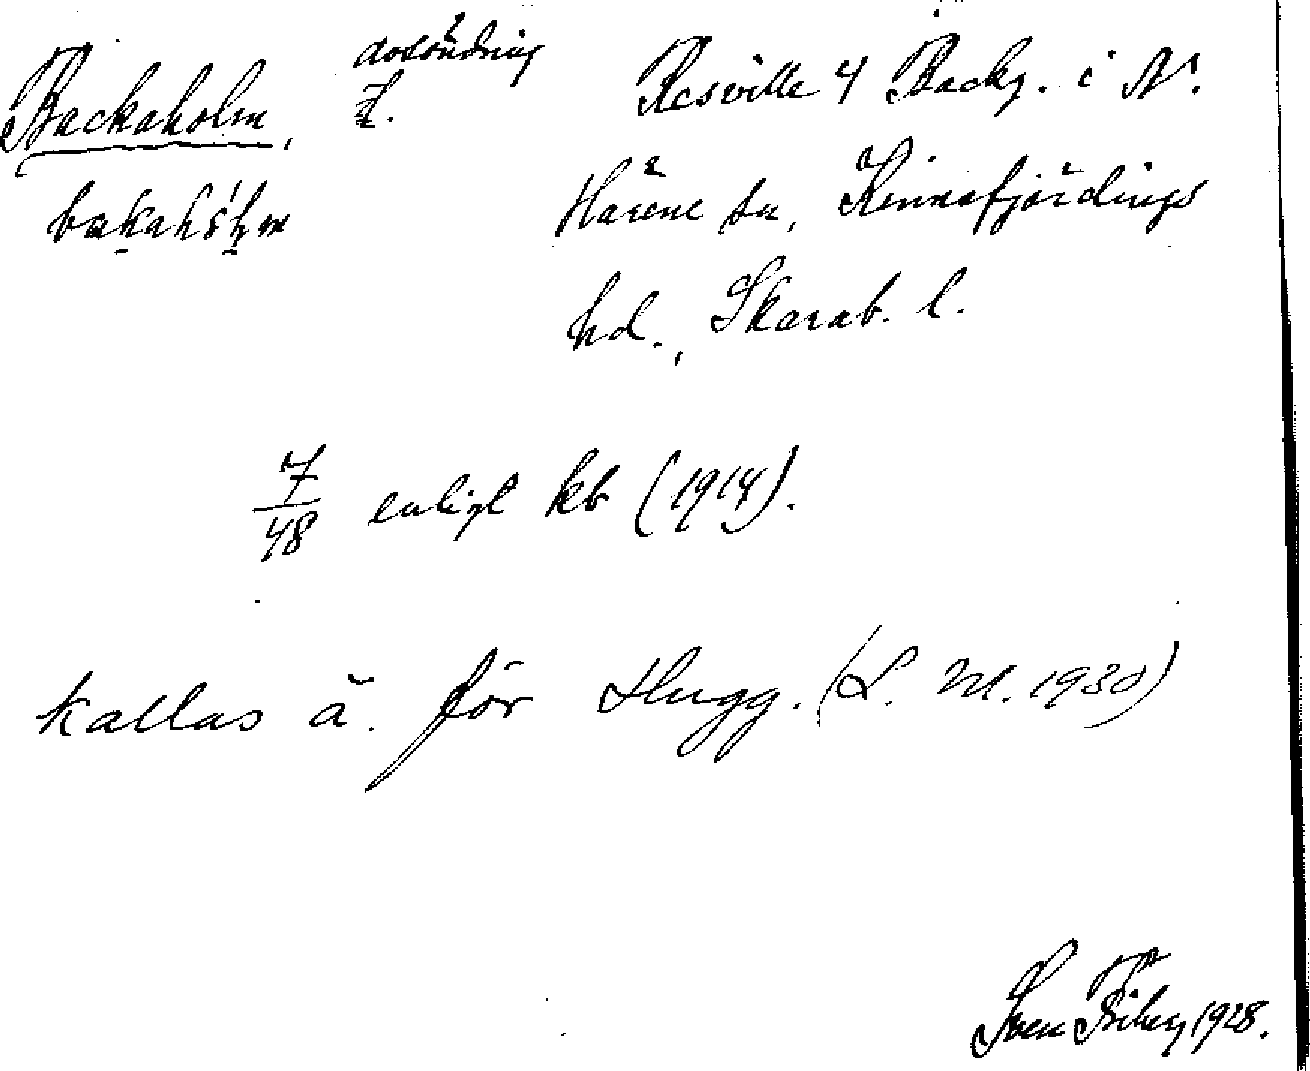 Backaholm, avsöndring Resville 4 Backg. i N.
Härene sn, Kinnefjärdings
hd., Skarab. l.
7/48 enligt kb (1914).
kallas ä. för Hugg. (L. M. 1930)
Sven Friberg 1928.